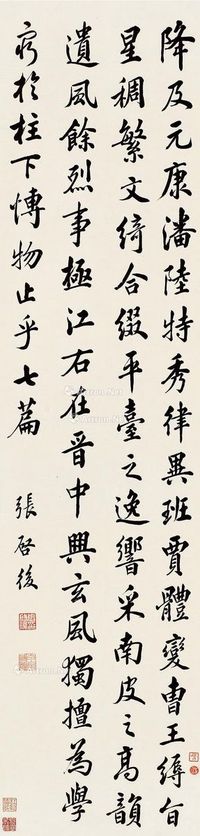 降及元康潘陸特秀律異班賈體變曹王縟旨
星稠繁文綺合綴平臺之逸響采南皮之高韻
遺風餘烈事極江右在晉中興玄風獨擅為學
窮於柱下愽物止乎七篇
張啓後